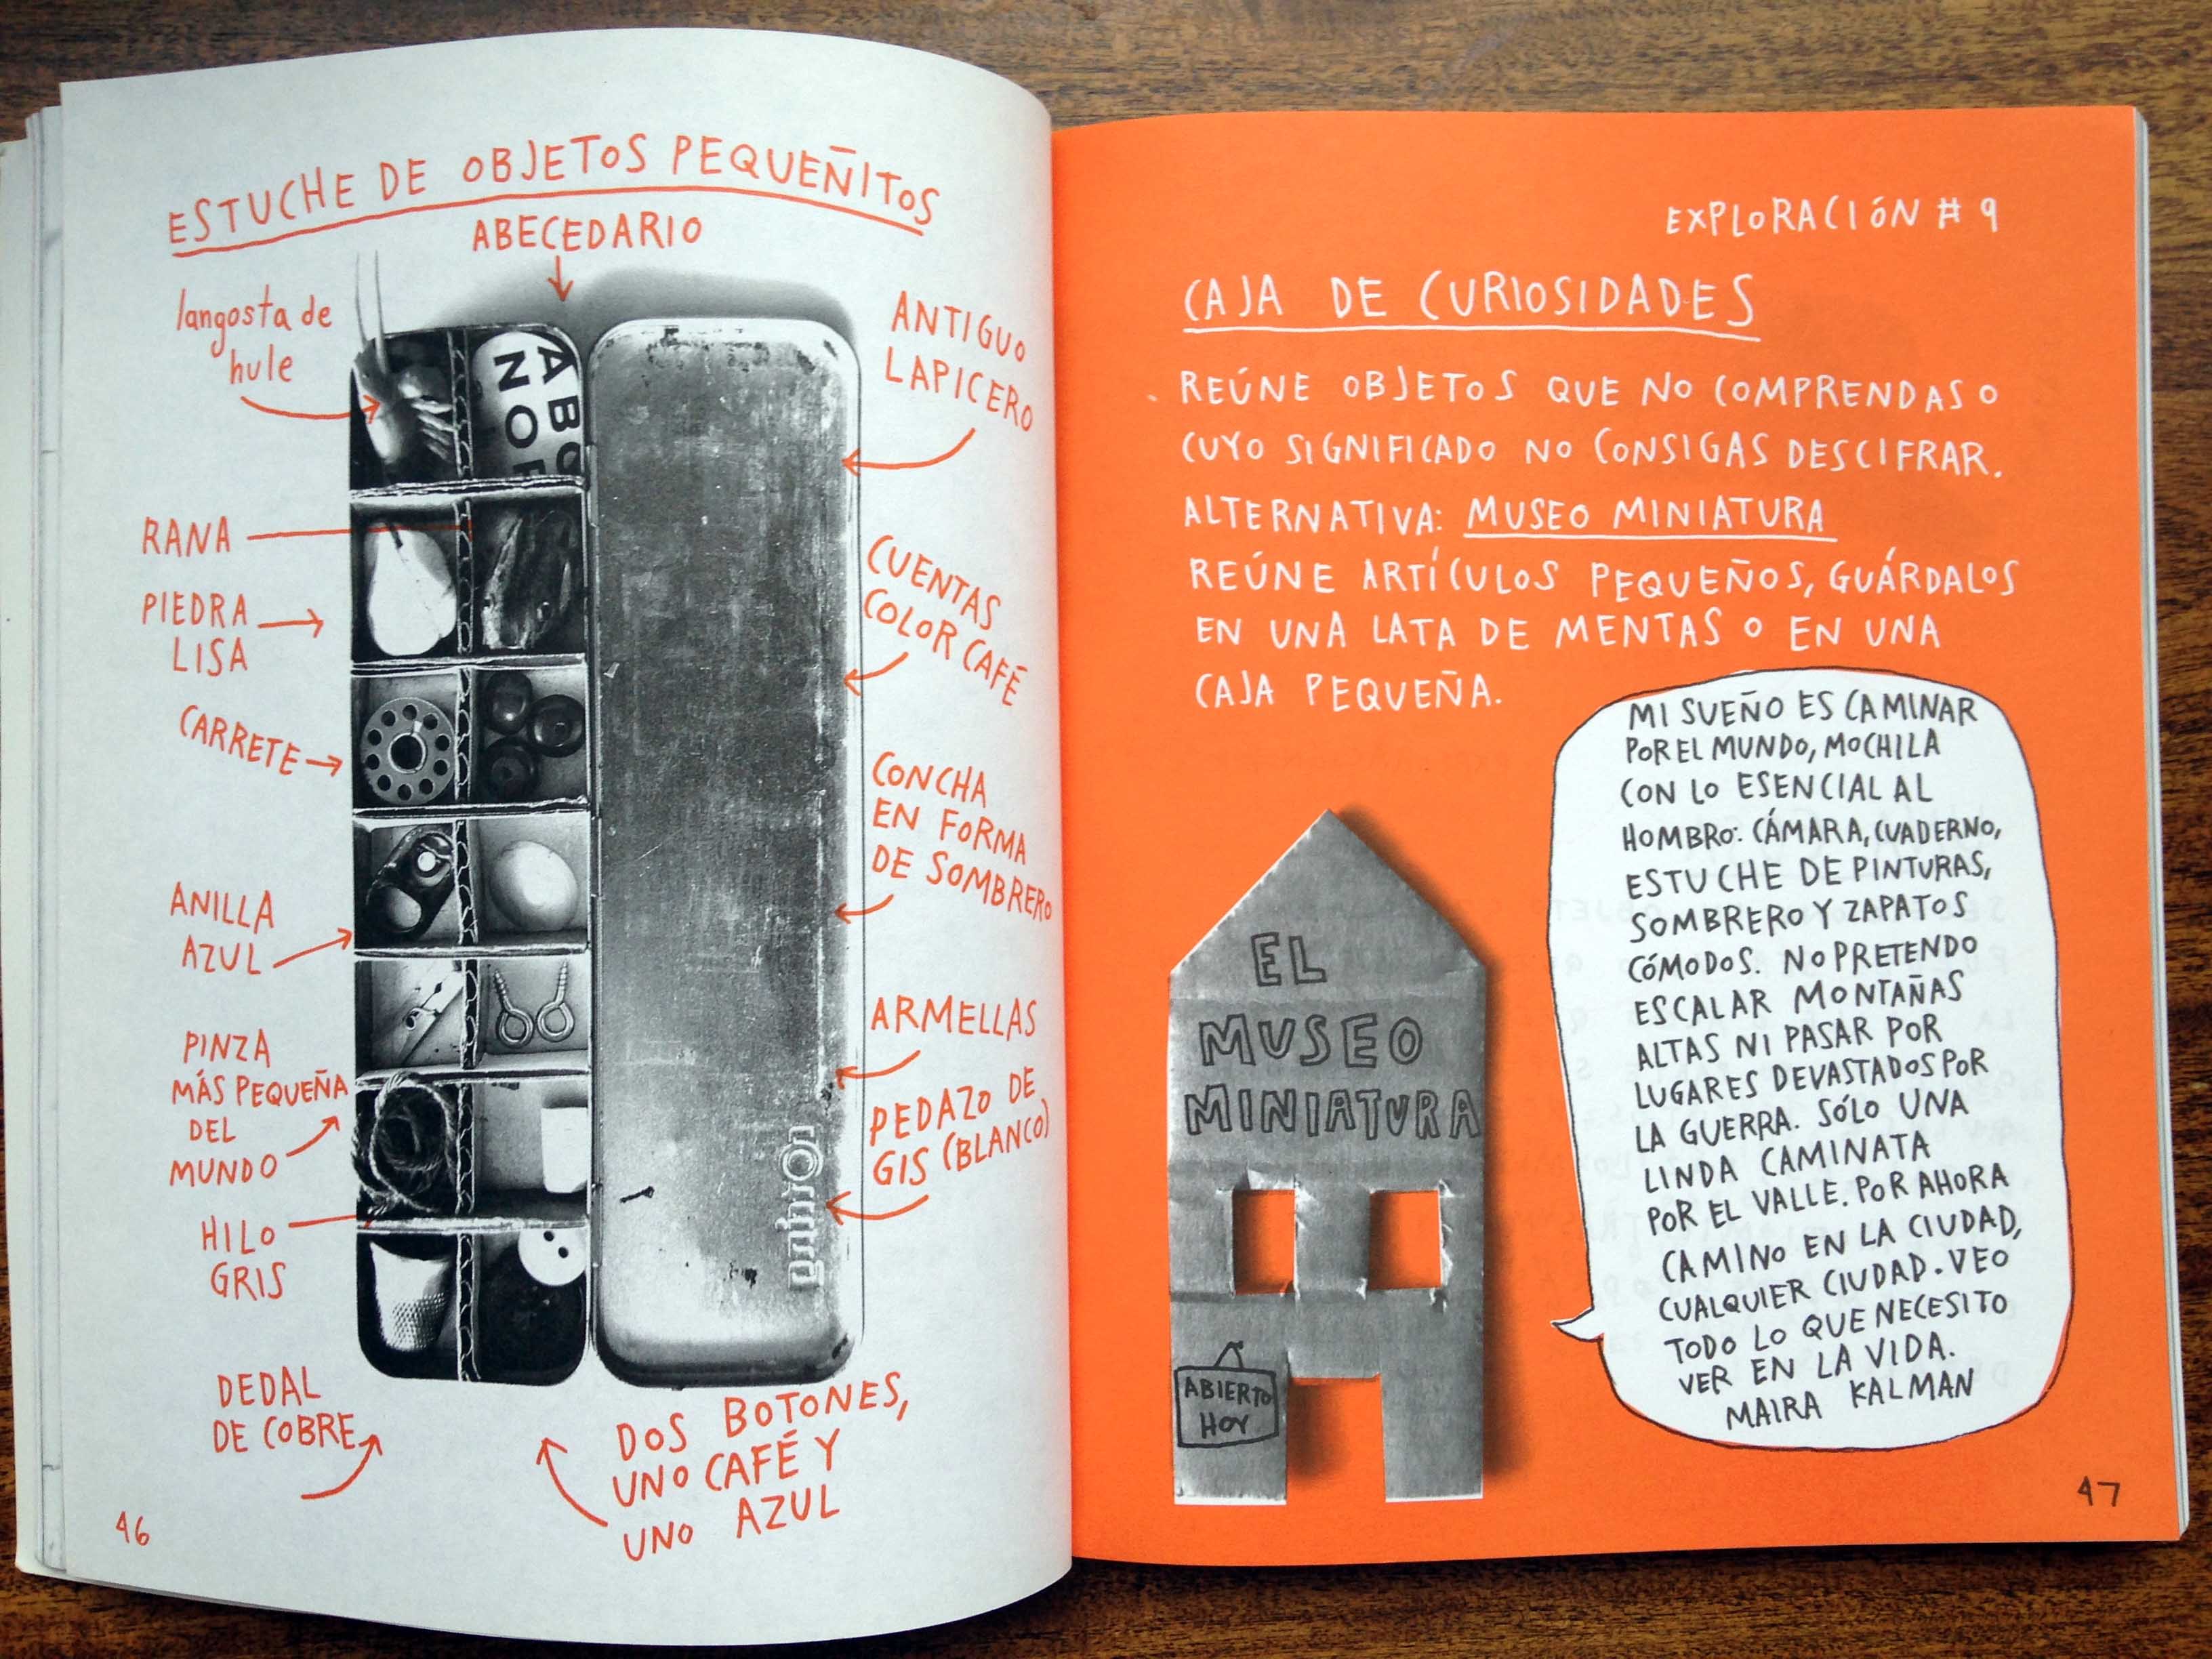 ESTUCHE DE OBJETOS PEQUEÑITOS
ABECEDARIO
langosta de
hule
RANA
PIEDRA
LISA
CARRETE
ANILLA
AZUL
PINZA
MÁS PEQUEÑA
DEL
MUNDO
HILO
GRIS
DEDAL
DE COBRE
ANTIGUO
LAPICERO
CUENTAS
COLOR CAFÉ
CONCHA
EN FORMA
DE SOMBRERO
ARMELLAS
PEDAZO DE
GIS (BLANCO)
DOS BOTONES,
UNO CAFÉ Y
UNO AZUL
46
EXPLORACIÓN # 9
CAJA DE CURIOSIDADES
REÚNE OBJETOS QUE NO COMPRENDAS O
CUYO SIGNIFICADO NO CONSIGAS DESCIFRAR.
ALTERNATIVA: MUSEO MINIATURA
REÚNE ARTÍCULOS PEQUEÑOS, GUÁRDALOS
EN UNA LATA DE MENTAS O EN UNA
CAJA PEQUEÑA.
EL
MUSEO
MINIATURA
ABIERTO
HOY
MI SUEÑO ES CAMINAR
POR EL MUNDO, MOCHILA
CON LO ESENCIAL AL
HOMBRO: CÁMARA, CUADERNO,
ESTUCHE DE PINTURAS,
SOMBRERO Y ZAPATOS
CÓMODOS. NO PRETENDO
ESCALAR MONTAÑAS
ALTAS NI PASAR POR
LUGARES DEVASTADOS POR
LA GUERRA. SÓLO UNA
LINDA CAMINATA
POR EL VALLE. POR AHORA
CAMINO EN LA CIUDAD,
CUALQUIER CIUDAD. VEO
TODO LO QUE NECESITO
VER EN LA VIDA.
MAIRA KALMAN
47